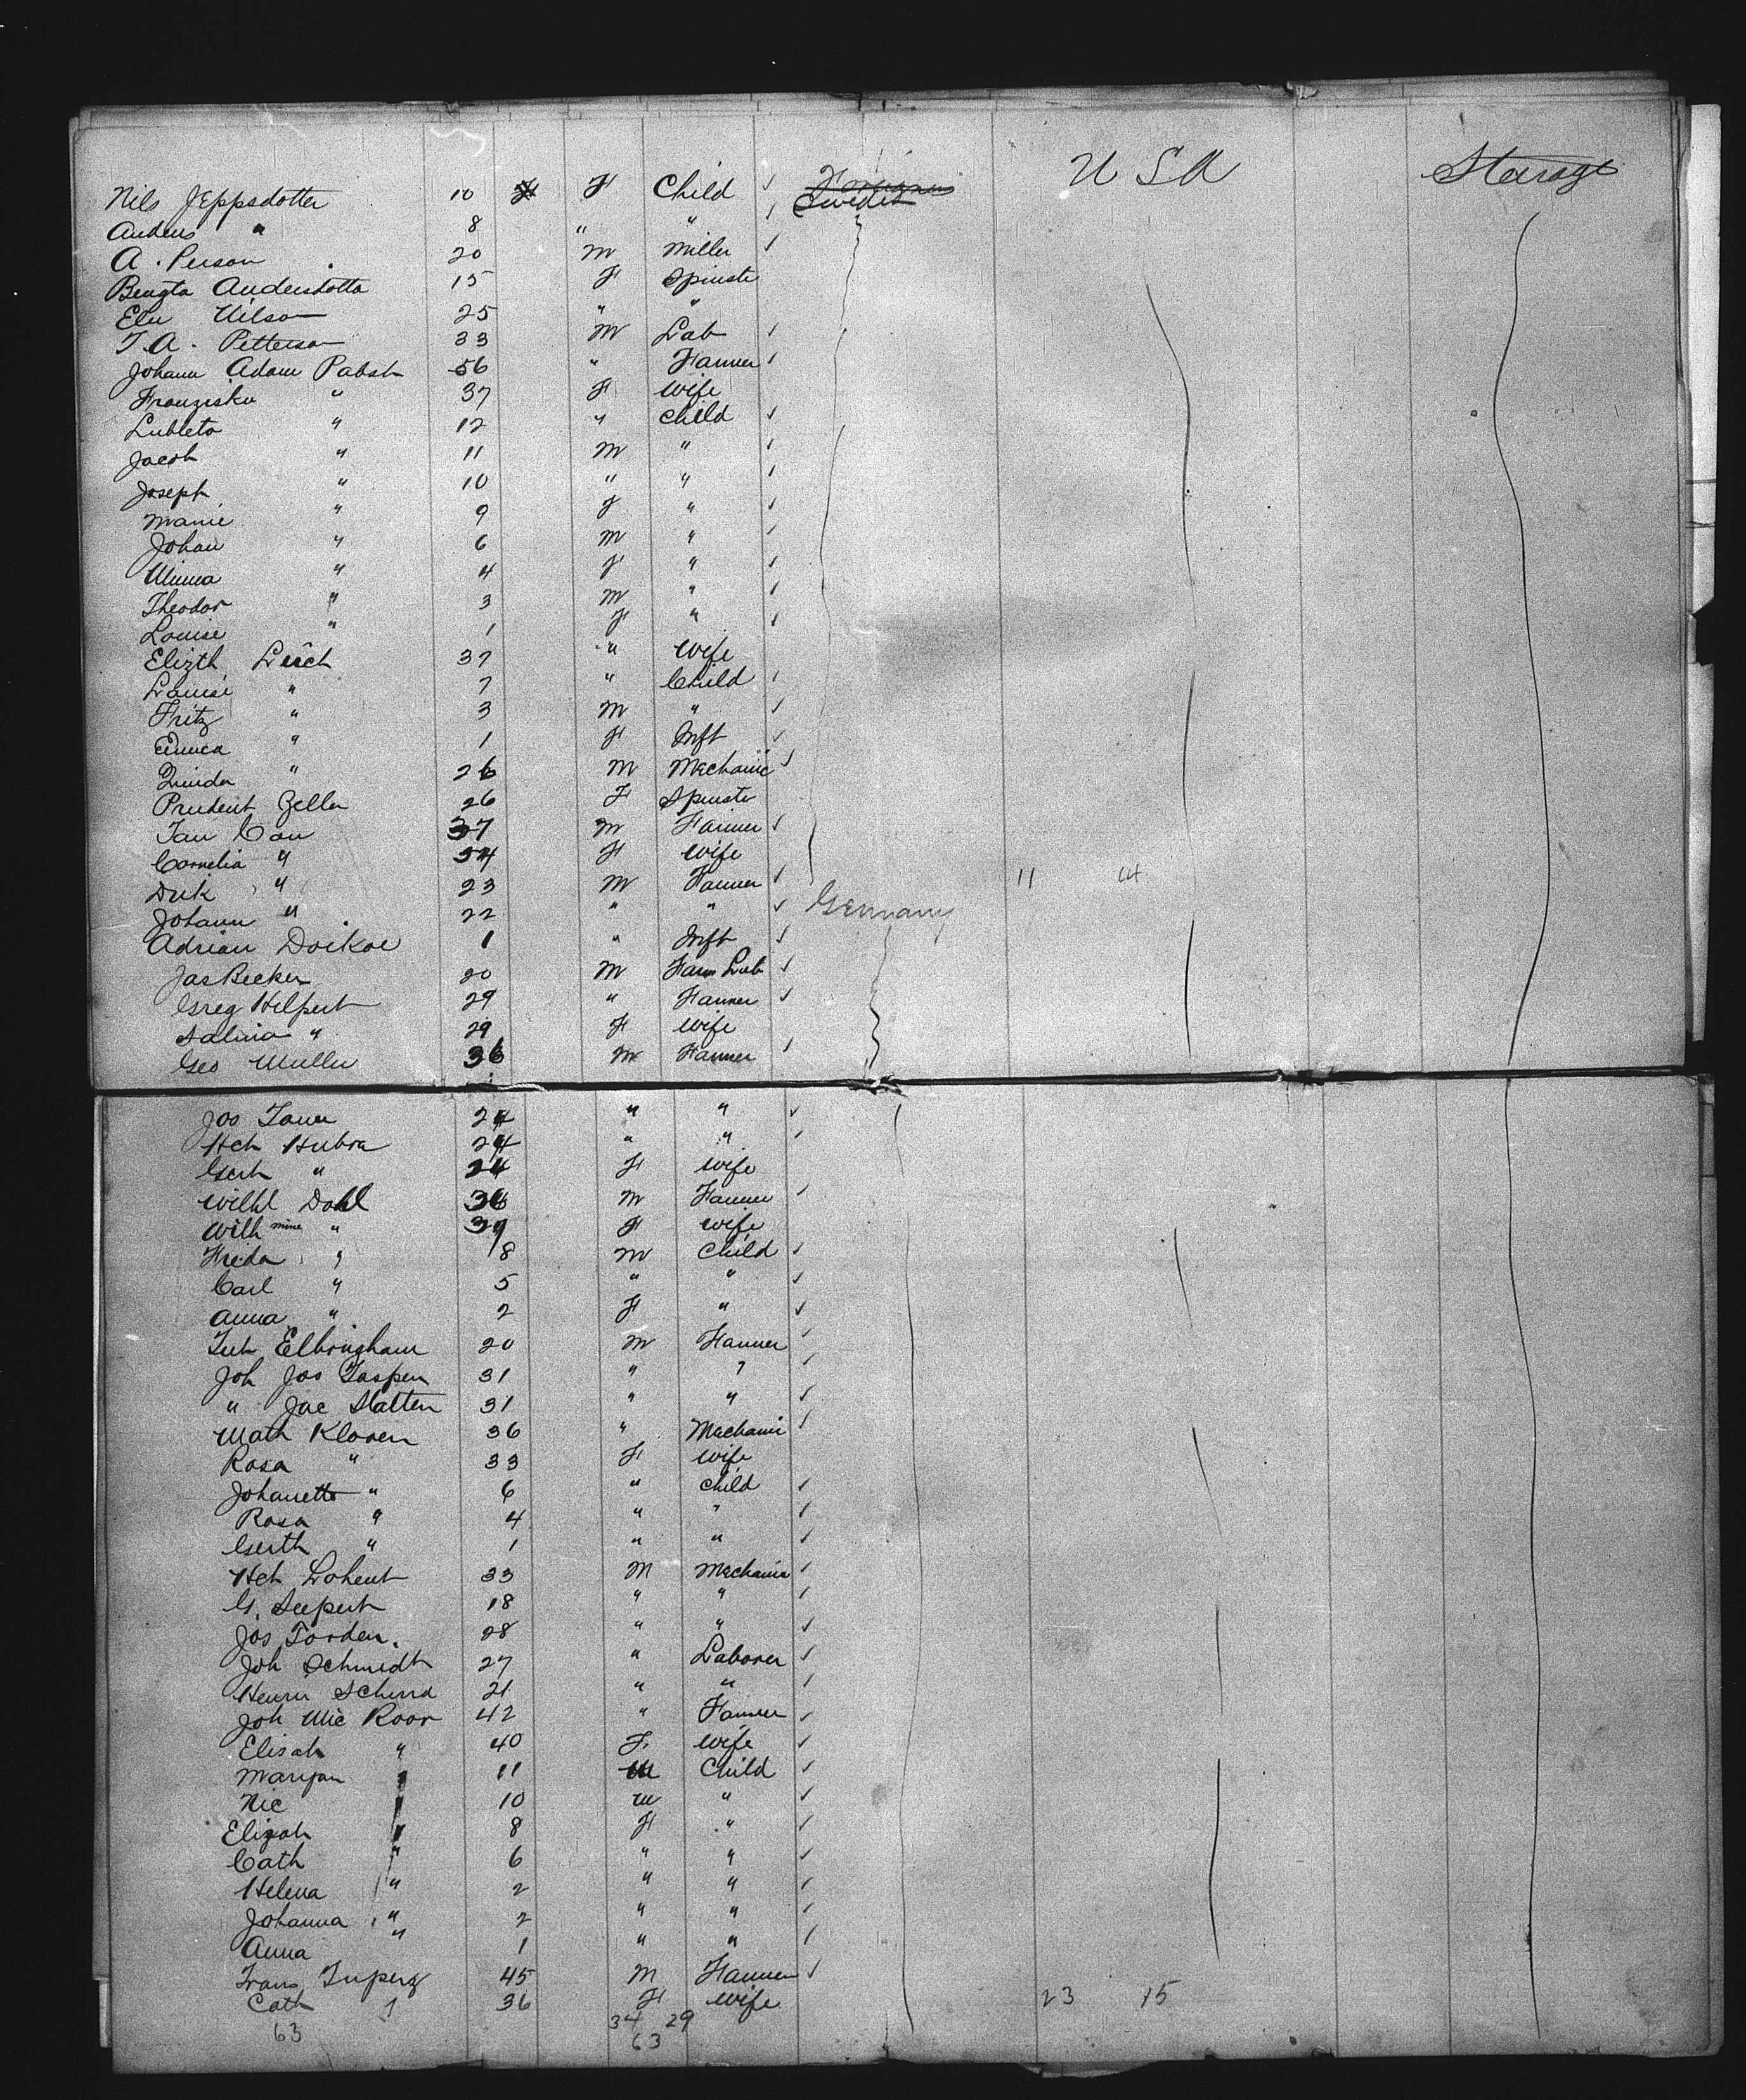 Nils Jeppsdotter 10 F F Child ✓ Sweden U S A Steerage
Anders " 8 " " ✓
A. Person 20 M Miller ✓
Bengta Andersdotta 15 F Spinste
Elu Nilson 25 " "
J. A. Petterson 33 M Lab ✓
Johann Adam Pabst 56 " Farmer ✓
Franzisku " 37 F Wife
" 12 " Child ✓
Jacob " 11 M " ✓
Joseph " 10 " " ✓
Marie " 9 F " ✓
Johan " 6 M " ✓
Minna " 4 F " ✓
Theodor " 3 M " ✓
Louise " 1 F " ✓
Elizth Leich 37 " Wife
Louise " 7 " Child ✓
Fritz " 3 M " ✓
Emma " 1 F Inft ✓
" 26 M Mechanic ✓
Prudent Zeller 26 F Spinste
Jan Con 37 M Farmer ✓
Cornelia " 34 F Wife
Dirk " 23 M Farmer ✓ 11 14
Johann " 22 " " ✓ Germany
Adrian Doikoe 1 " Inft ✓
Jas Becker 20 M Farm Lab ✓
Greg Hilpert 29 " Farmer ✓
Salina " 29 F Wife
Geo Muller 36 M Farmer ✓
Jos 24 " " ✓
Hch Hubra 24 " " ✓
Gert " 24 F Wife
Wilhl Dahl 36 M Farmer ✓
Wilhmine " 39 F Wife
Freda " 8 M Child ✓
Carl " 5 " " ✓
Anna " 2 F " ✓
Elbringham 20 M Farmer ✓
Joh Jos Jaspen 31 " " ✓
" Jac Slatten 31 " " ✓
Math Kloren 36 " Mechanic ✓
Rosa " 33 F Wife
Johanette " 6 " Child ✓
Rosa " 4 " " ✓
Gerth " 1 " " ✓
Hch Lohent 33 M Mechanic ✓
G. Seepert 18 " " ✓
Jos Torden. 28 " " ✓
Joh Schmidt 27 " Laborer ✓
Henri Schurra 21 " " ✓
Joh Nic Roor 42 " Farmer ✓
Elisah " 40 F. Wife ✓
Marijan " 11 M Child ✓
Nic " 10 M " ✓
Elizah " 8 F " ✓
Cath " 6 " " ✓
Helena " 2 " " ✓
Johanna " 2 " " ✓
Anna " 1 " " ✓
Frans Juperz 45 M Farmer ✓
Cath " 36 F Wife 23 15
63 34 29
63